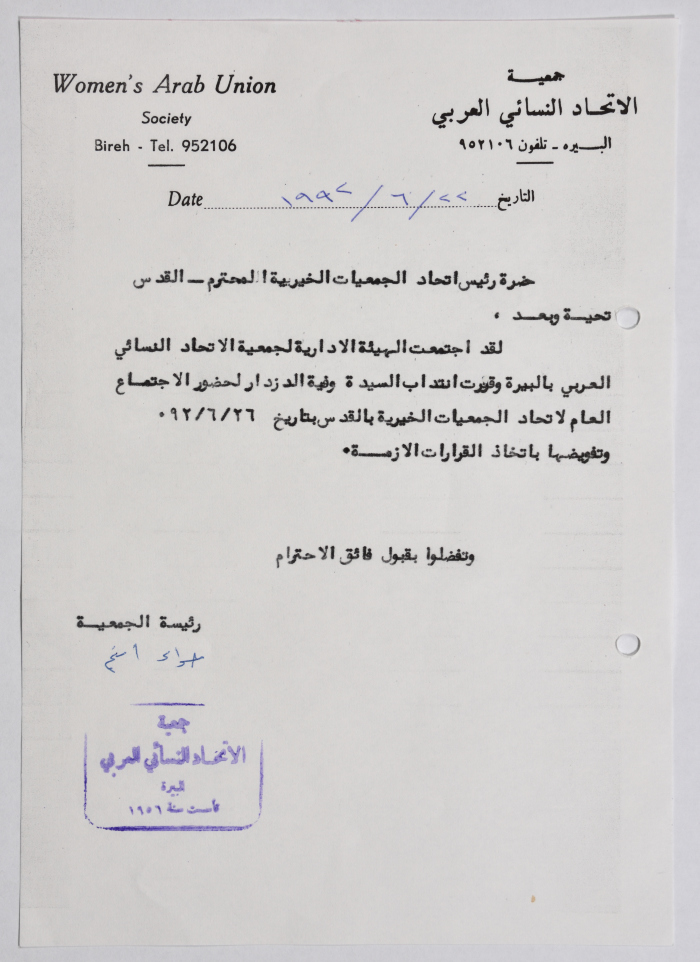 Women's Arab Union
Society
Bireh - Tel. 952106
جمعيـــة
الاتحـاد النسائي العربي
البـــيره ـ تلفون ٩٥٢١٠٦
Date ١٩٩٢/٦/٢٢ التاريخ
حضرة رئيس اتحاد الجمعيات الخيرية المحترم ــ القدس
تحيـــة وبعـــد ،
لقد اجتمعت الهيئة الادارية لجمعية الاتحاد النسائي
العربي بالبيرة وقررت انتداب السيدة وفية الدزدار لحضور الاجتماع
العام لاتحاد الجمعيات الخيرية بالقدس بتاريخ ٩٢/٦/٢٦٠
وتفويضها باتخاذ القرارات الازمـــة٠
وتفضلوا بقبول فائق الاحترام
رئيسة الجمعيـــة
جمعية
الاتحـاد النسائي العربي
البيرة
تأسست سنة ١٩٥٦